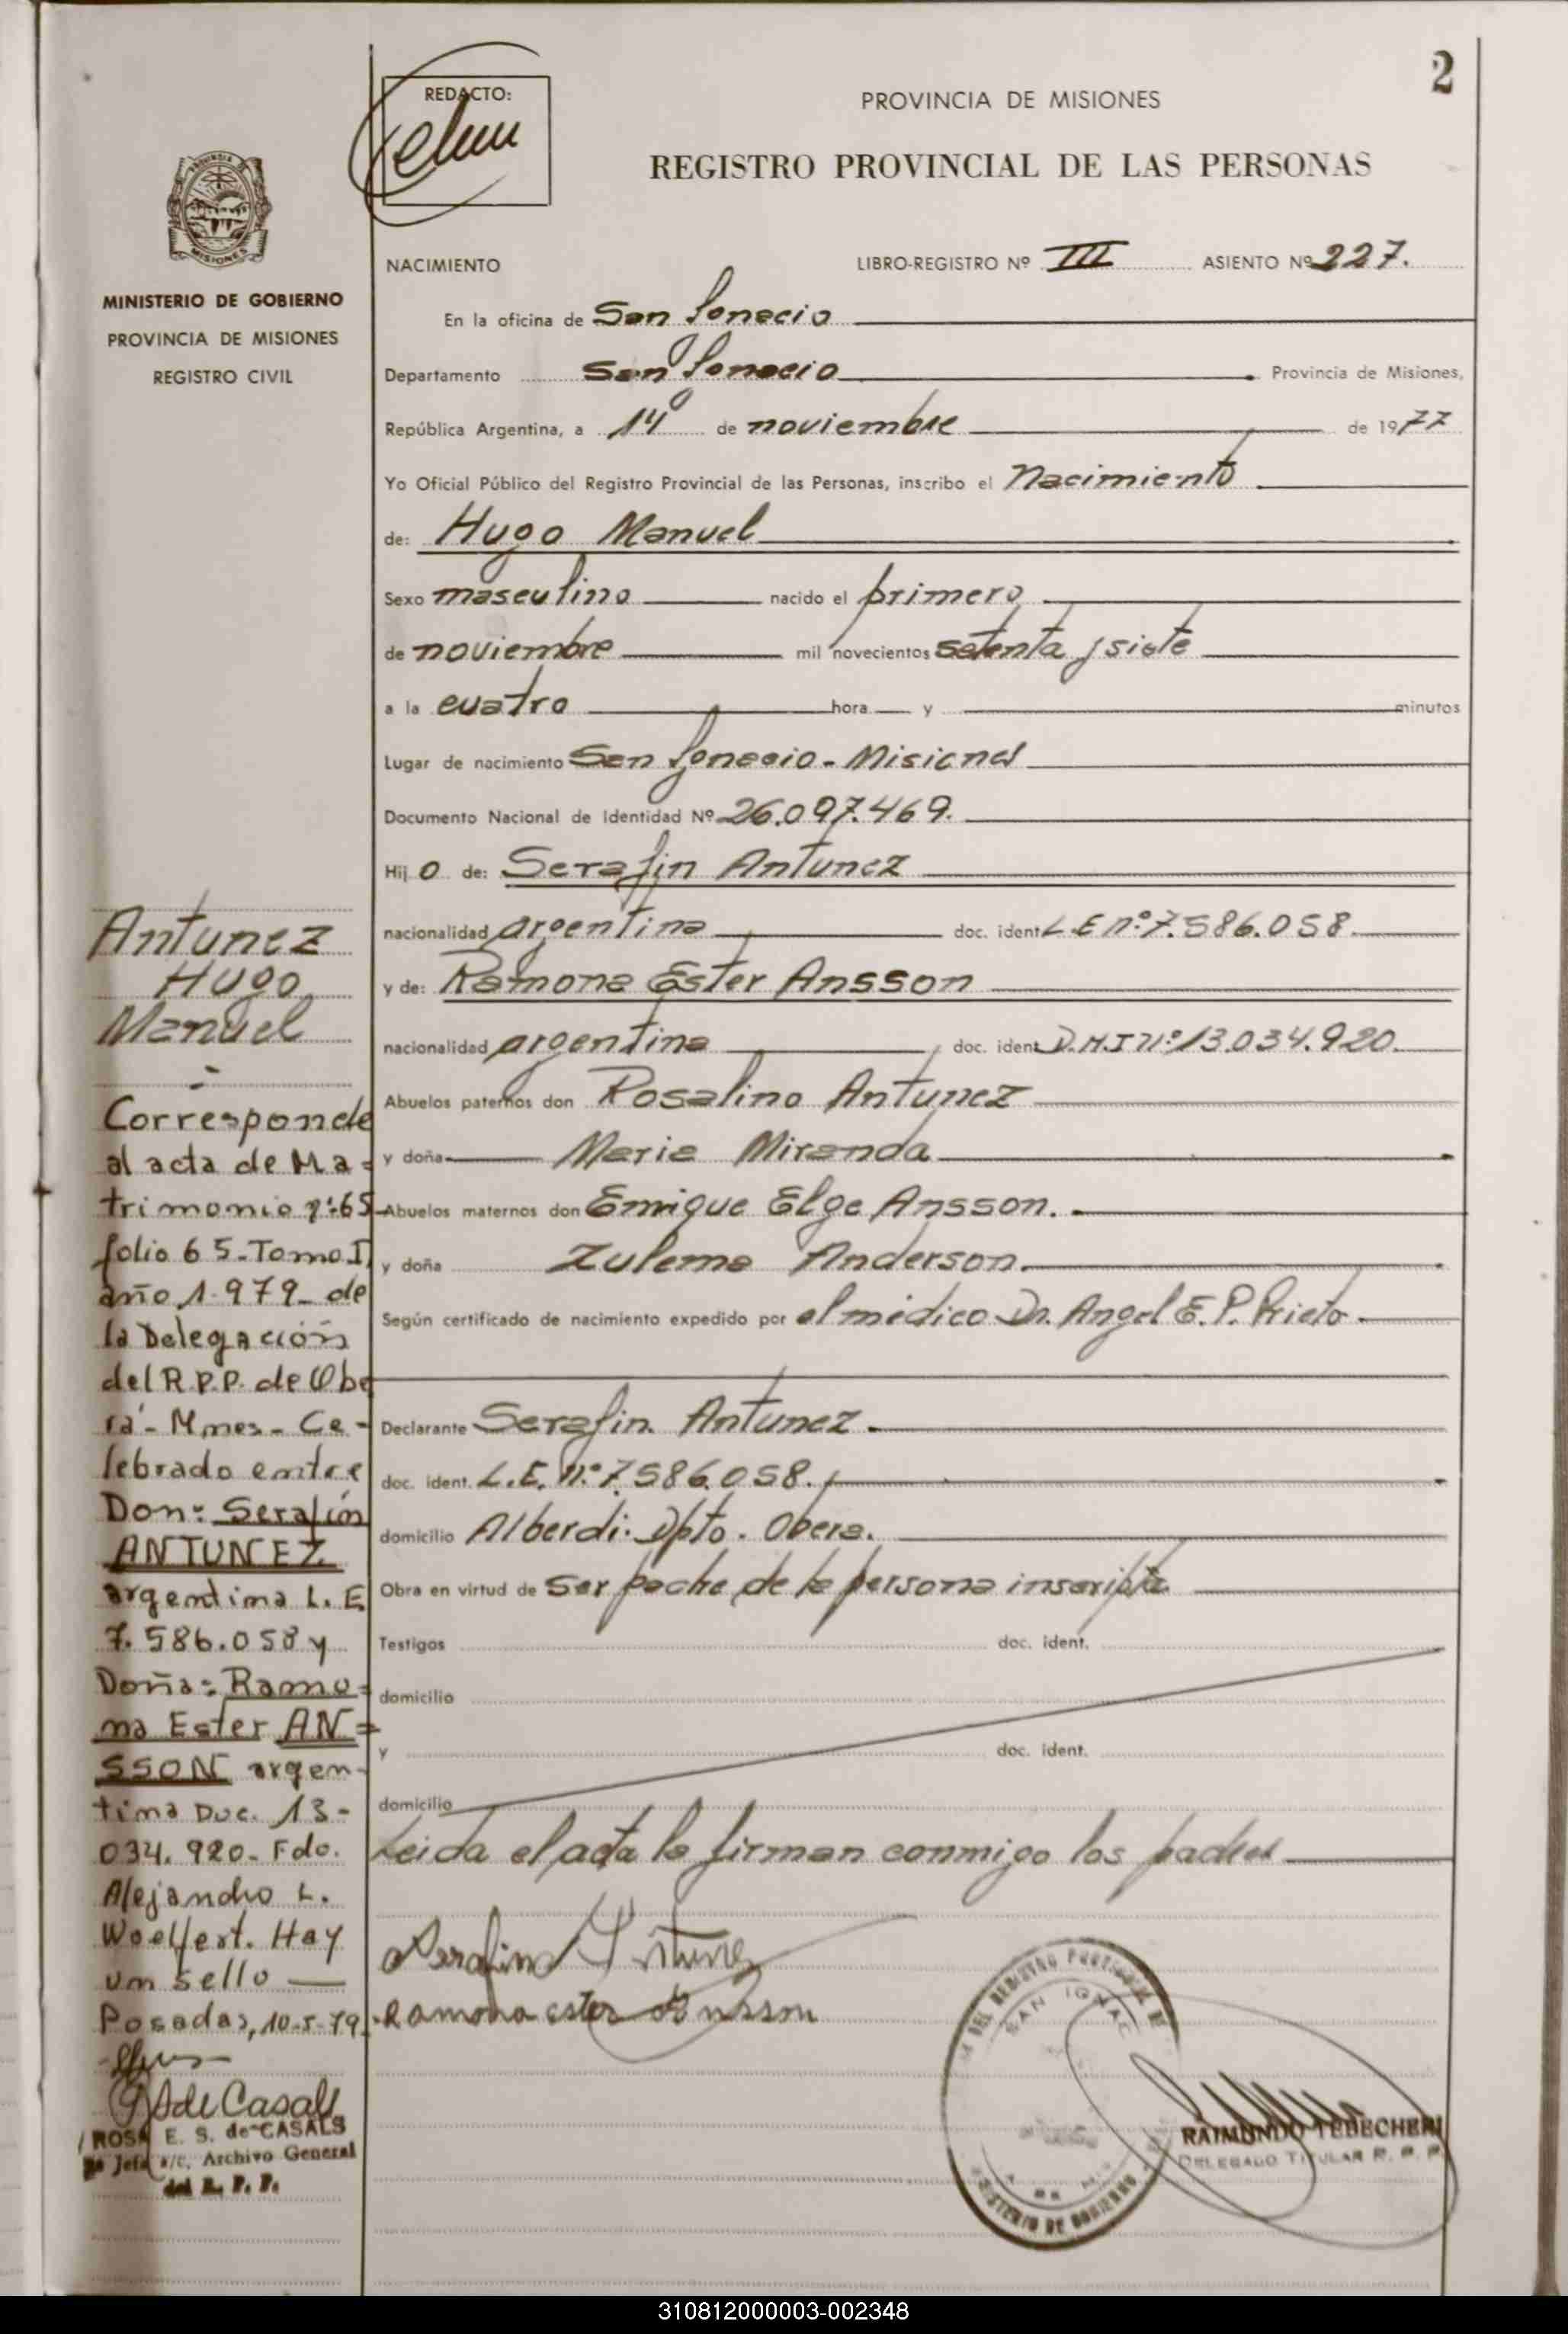 2
REDACTO:
PROVINCIA DE MISIONES
REGISTRO PROVINCIAL DE LAS PERSONAS
MISIONES
MINISTERIO DE GOBIERNO
PROVINCIA DE MISIONES
REGISTRO CIVIL
NACIMIENTO LIBRO-REGISTRO Nº III ASIENTO Nº 227.
En la oficina de San Ignacio
Departamento San Ignacio Provincia de Misiones,
República Argentina, a 14 de noviembre de 1977
Yo Oficial Público del Registro Provincial de las Personas, inscribo el Nacimiento
de: Hugo Manuel
Sexo masculino nacido el primero
de noviembre mil novecientos setenta y siete
a la cuatro hora y minutos
Lugar de nacimiento San Ignacio - Misiones
Documento Nacional de Identidad Nº 26.097.469.
Hijo de: Serafin Antunez
nacionalidad argentina doc. ident. L.E nº 7.586.058.
y de: Ramona Ester Ansson
nacionalidad argentina doc. ident. D.N.I nº 13.034.920.
Abuelos paternos don Rosalino Antunez
y doña Maria Miranda
Abuelos maternos don Enrique Elge Ansson.
y doña Zulema Anderson.
Según certificado de nacimiento expedido por el médico Dr. Angel E. P. Prieto
Declarante Serafin Antunez
doc. ident. L.E. nº 7.586.058.
domicilio Alberdi. Dpto. Obera.
Obra en virtud de ser padre de la persona inscripta
Testigos doc. ident.
domicilio
y doc. ident.
domicilio
Leida el acta la firman conmigo los padres
Serafin Antunez
Ramona ester Ansson
SAN IGNAC
MINISTERIO DE GOBIERNO
RAIMUNDO TEBECHERI
DELEGADO TITULAR R. P. P.
Antunez
Hugo
Manuel
Corresponde
al acta de Ma-
trimonio nº:65
folio 65-Tomo I
año 1.979- de
la Delegación
del R.P.P. de Obe
rá- Mnes- Ce-
lebrado entre
Don: Serafín
ANTUNEZ
argentino L.E
7.586.058 y
Doña: Ramo-
na Ester AN=
SSON argen-
tina Doc. 13-
034.920- Fdo.
Alejandro L.
Woelfert. Hay
un sello
Posadas, 10-5-79
ROSA E. S. de CASALS
Jefa a/c. Archivo General
del R. P. P.
310812000003-002348